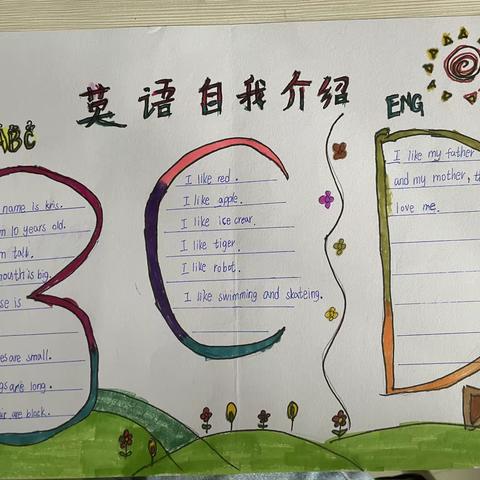 英语自我介绍
ENG
ABC
name is kris.
10 years old.
talk.
mouth is big.
is
are small.
are long.
are black.
I like red.
I like apple.
I like ice crear.
I like tiger.
I like robot.
I like swimming and skateing.
I like my father
and my mother,
love me.